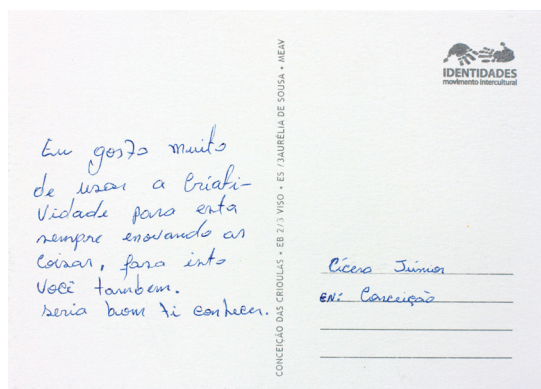 Eu gosto muito
de usar a Criati-
vidade para esta
sempre enovando as
Coisas, fasa isto
Você tambem.
seria bom ti conhecer.
CONCEIÇÃO DAS CRIOULAS • EB 2/3 VISO • ES /3AURÉLIA DE SOUSA • MEAV
IDENTIDADES
movimento intercultural
Cícero Júnior
EN: Conceição